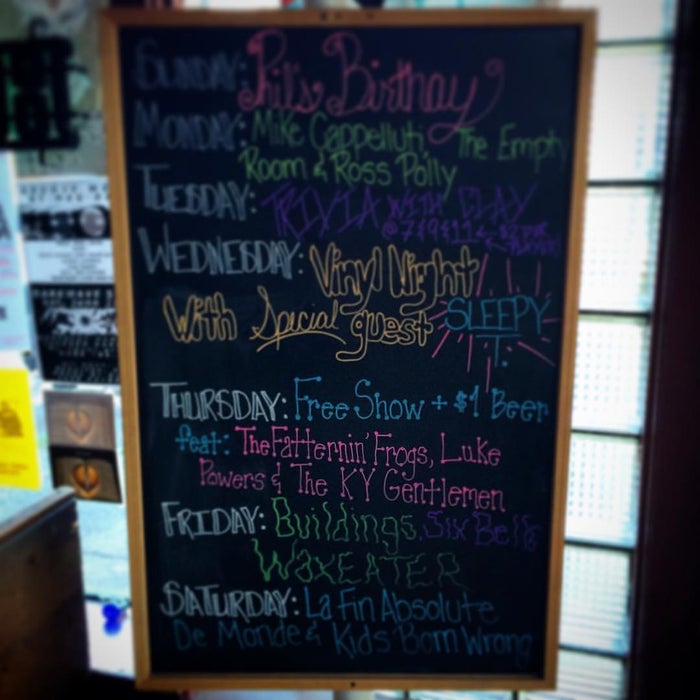 SUNDAY: Phil's Birthay
MONDAY: Mike Cappelluti, The Empty
Room & Ross Polly
TUESDAY: TRIVIA WITH CLAY
@ 7 & 9 & 11
WEDNESDAY: Vinyl Night
With Special guest SLEEPY
T.
THURSDAY: Free Show + $1 Beer
feat: The Fatternin' Frogs, Luke
Powers & The KY Gentlemen
FRIDAY: Buildings, Six Bells
WaxEATER
SATURDAY: La Fin Absolute
De Monde & Kids Born Wrong